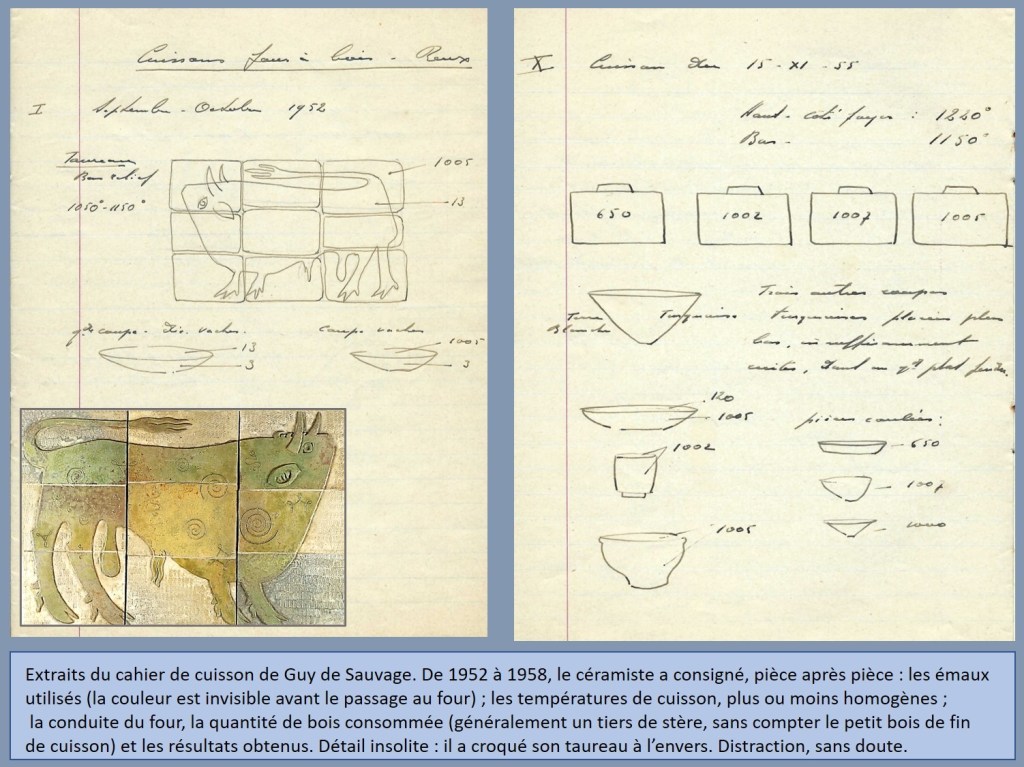 Cuissons four à bois - Roux
I Septembre - Octobre 1952
Taureau
Bas relief
1050°-1150°
1005
13
gde coupe - vaches.
13
3
coupe vaches
1005
3
X Cuisson du 15-XI-55
Haut - côté foyer : 1220°
Bas - 1150°
650
1002
1007
1005
Terre
Blanche
Turquoise.
Trois autres coupes
turquoises placées plus
bas, insuffisamment
cuites, Dont un gd plat
120
1005
1002
1005
pièces coulées :
650
1007
1000
Extraits du cahier de cuisson de Guy de Sauvage. De 1952 à 1958, le céramiste a consigné, pièce après pièce : les émaux
utilisés (la couleur est invisible avant le passage au four) ; les températures de cuisson, plus ou moins homogènes ;
la conduite du four, la quantité de bois consommée (généralement un tiers de stère, sans compter le petit bois de fin
de cuisson) et les résultats obtenus. Détail insolite : il a croqué son taureau à l'envers. Distraction, sans doute.